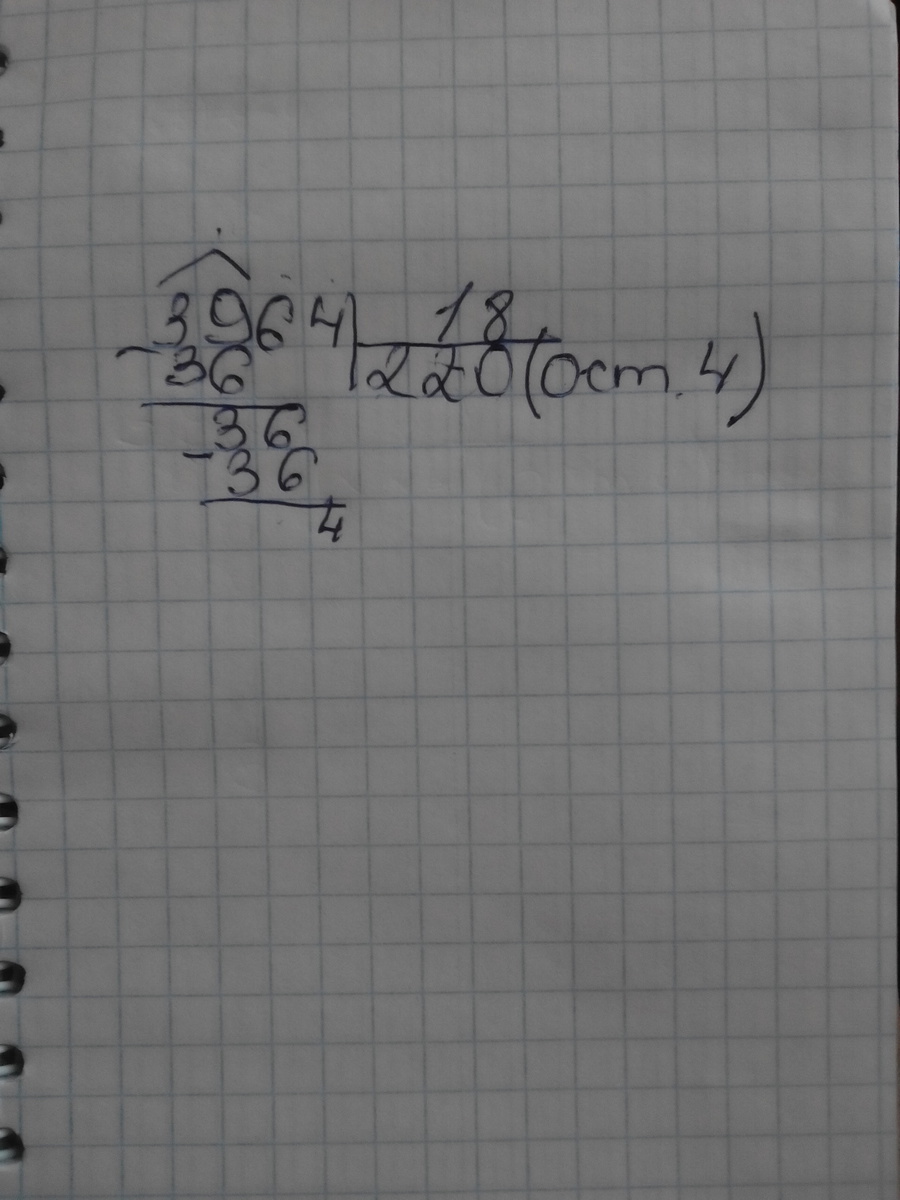 3964 | 18
- 36 | 220 (ост. 4)
36
- 36
4